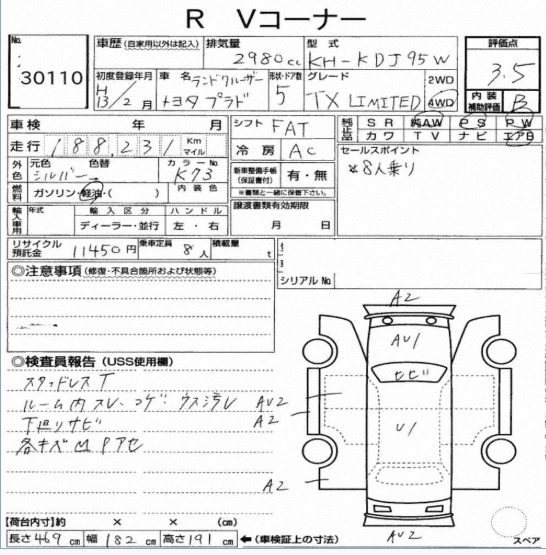 R Vコーナー
No.
30110
車歴 (自家用以外は記入)
排気量
2980cc
型式
KH-KDJ95W
評価点
3.5
初度登録年月
H
13/2月
車名
ランドクルーザー
トヨタ プラド
形状・ドア数
5
グレード
TX LIMITED
2WD
4WD
内装
補助評価
B
車検 年 月
走行 188,231 Km
マイル
シフト FAT
冷房 AC
純正品
SR 純AW PS PW
カワ TV ナビ エアB
外色
元色 色替
シルバー
カラーNo.
K73
セールスポイント
*8人乗り
新車整備手帳
(保証書付)
有・無
※書類と一緒に保管下さい。
燃料
ガソリン・軽油・( )
内装色
輸入車用
年式
輸入区分
ハンドル
ディーラー・並行
左・右
譲渡書類有効期限
月 日
リサイクル
預託金
11450円
乗車定員
8人
積載量
t
シリアルNo.
◎注意事項(修復・不具合箇所および状態等)
A2
AU1
トビ
◎検査員報告(USS使用欄)
スタッドレスT
ルーム内スレ・コゲ ウス汚レ
下廻りサビ
AU2
A2
U1
A2
AU2
スペア
【荷台内寸】約 × × (cm)
長さ 469 cm 幅 182 cm 高さ 191 cm ←(車検証上の寸法)